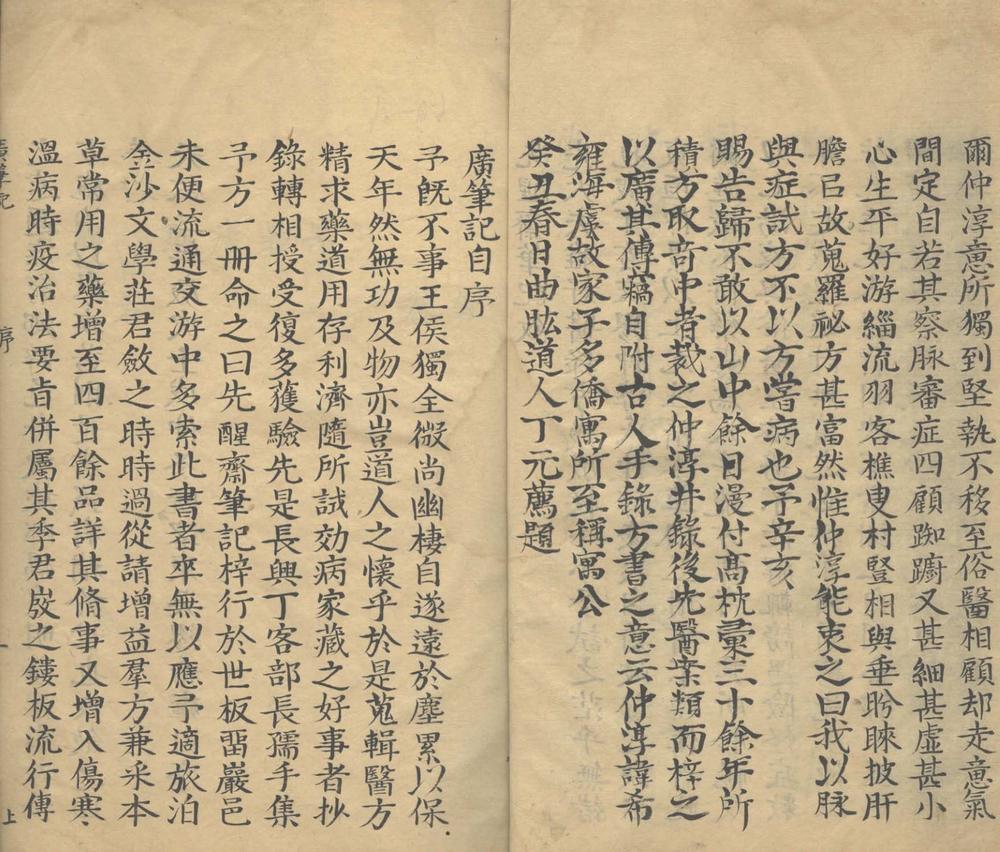 爾仲淳意所獨到堅執不移至俗醫相顧却走意氣
間定自若其察脉審症四顧踟躕又甚細甚虛甚小
心生平好游緇流羽客樵叟村豎相與垂盻睞披肝
膽已故蒐羅祕方甚富然惟仲淳能衷之曰我以脉
與症試方不以方嘗病也予辛亥
賜告歸不敢以山中餘日漫付高枕彙三十餘年所
積方取奇中者裁之仲淳并錄後先醫案類而梓之
以廣其傳竊自附古人手錄方書之意云仲淳諱希
雍海虞故家子多僑寓所至稱寓公
癸丑春日曲肱道人丁元薦題
廣筆記自序
予旣不事王侯獨全微尚幽棲自遂遠於塵累以保
天年然無功及物亦豈道人之懷乎於是蒐輯醫方
精求藥道用存利濟隨所試効病家藏之好事者抄
錄轉相授受復多獲驗先是長興丁客部長孺手集
予方一冊命之曰先醒齋筆記梓行於世板畱巖邑
未便流通交游中多索此書者卒無以應予適旅泊
金沙文學莊君斂之時時過從請增益羣方兼采本
草常用之藥增至四百餘品詳其脩事又增入傷寒
溫病時疫治法要旨併屬其季君弢之鏤板流行傳
廣筆記
序
一
上